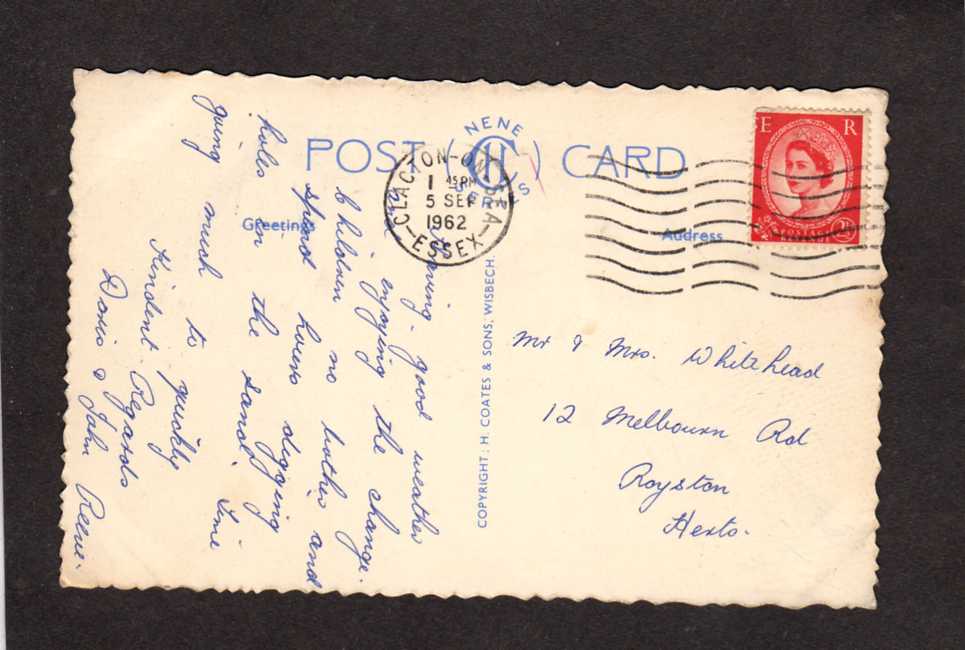 NENE
POST CARD
SERIES
CLACTON-ON-SEA
1 45 PM
5 SEP
1962
ESSEX
E R
Greetings
Address
COPYRIGHT: H. COATES & SONS, WISBECH.
Having good weather
enjoying the change.
Children no bother and
spend hours digging
holes in the sand. Time
going much to quickly
Kindest Regards
Doris & John Reeve.
Mr & Mrs. Whitehead
12 Melbourn Rd
Royston
Herts.